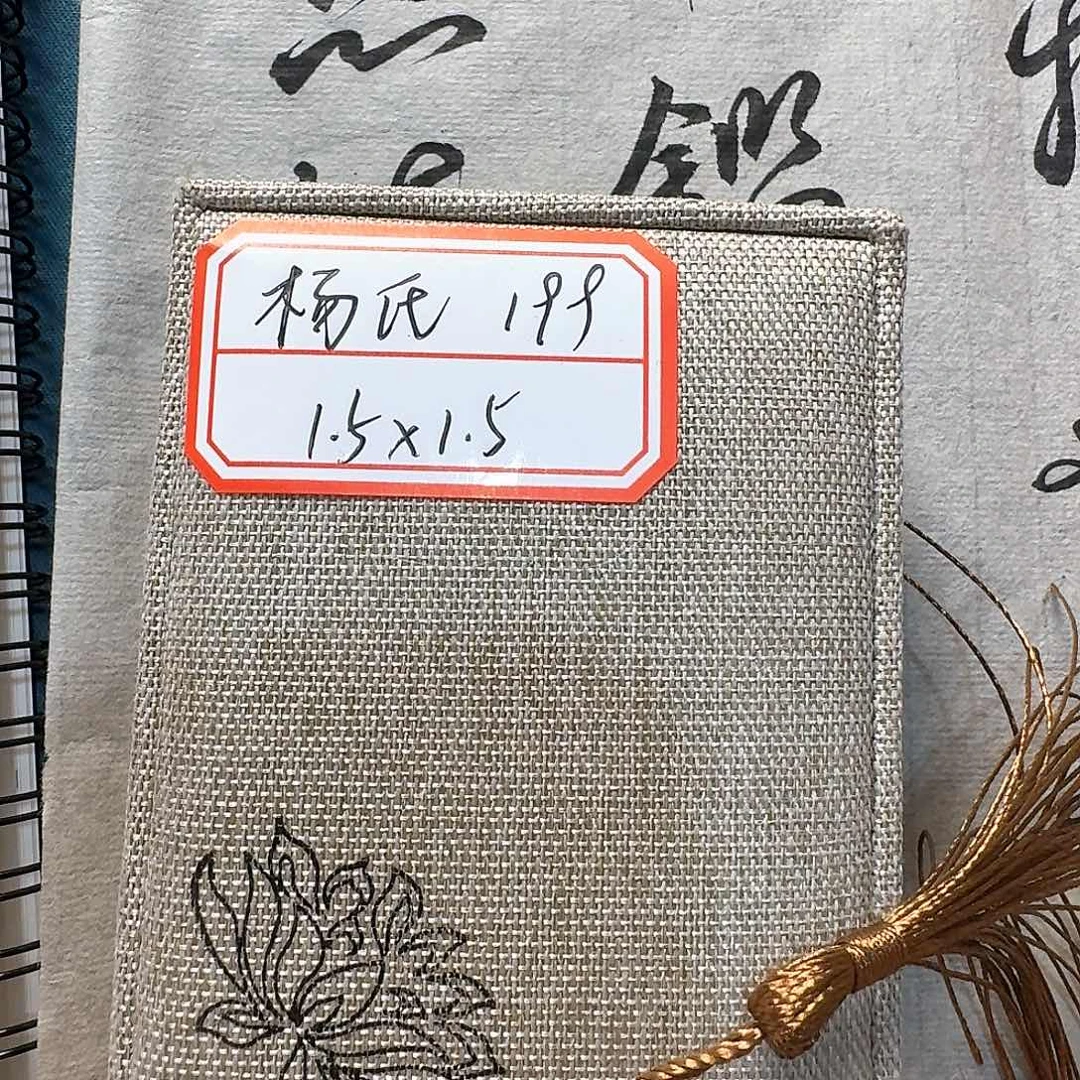 鑑
杨氏 199
1.5×1.5